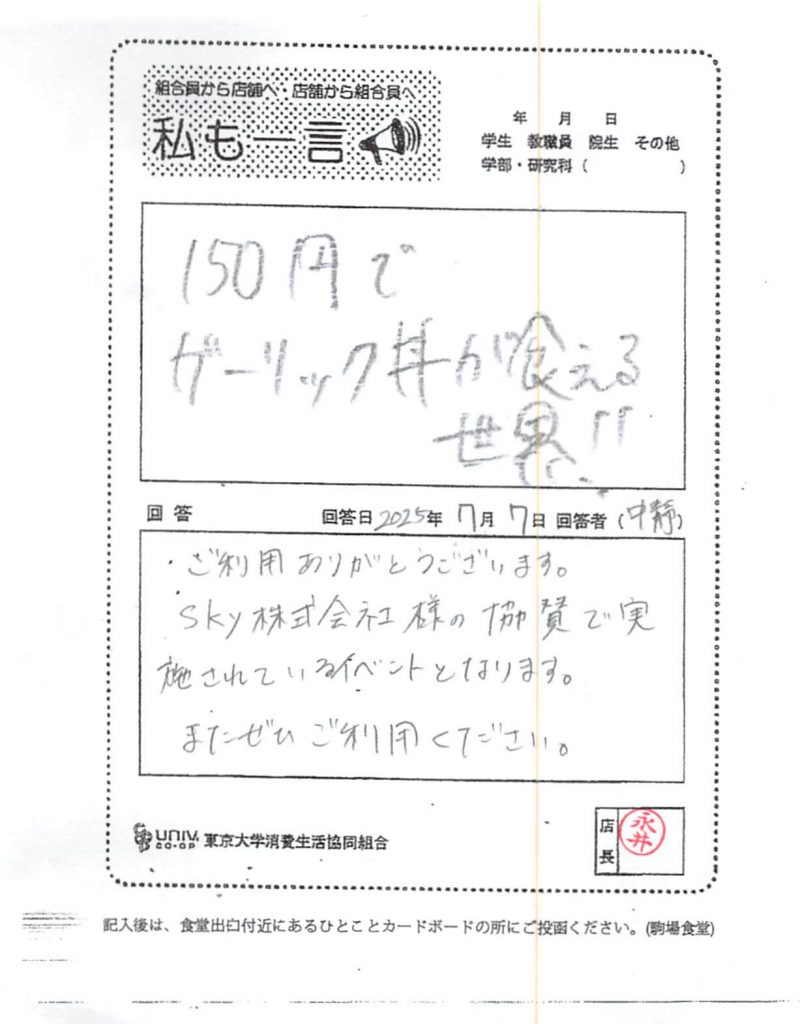 組合員から店舗へ・店舗から組合員へ
私も一言
年 月 日
学生 教職員 院生 その他
学部・研究科（ ）
150円で
ガーリック丼が食える
世界!!
回答 回答日2025年 7月 7日 回答者（中静）
・ご利用ありがとうございます。
sky株式会社様の協賛で実
施されているイベントとなります。
またぜひご利用ください。
UNIV. CO-OP 東京大学消費生活協同組合
店長 永井
記入後は、食堂出口付近にあるひとことカードボードの所にご投函ください。(駒場食堂)